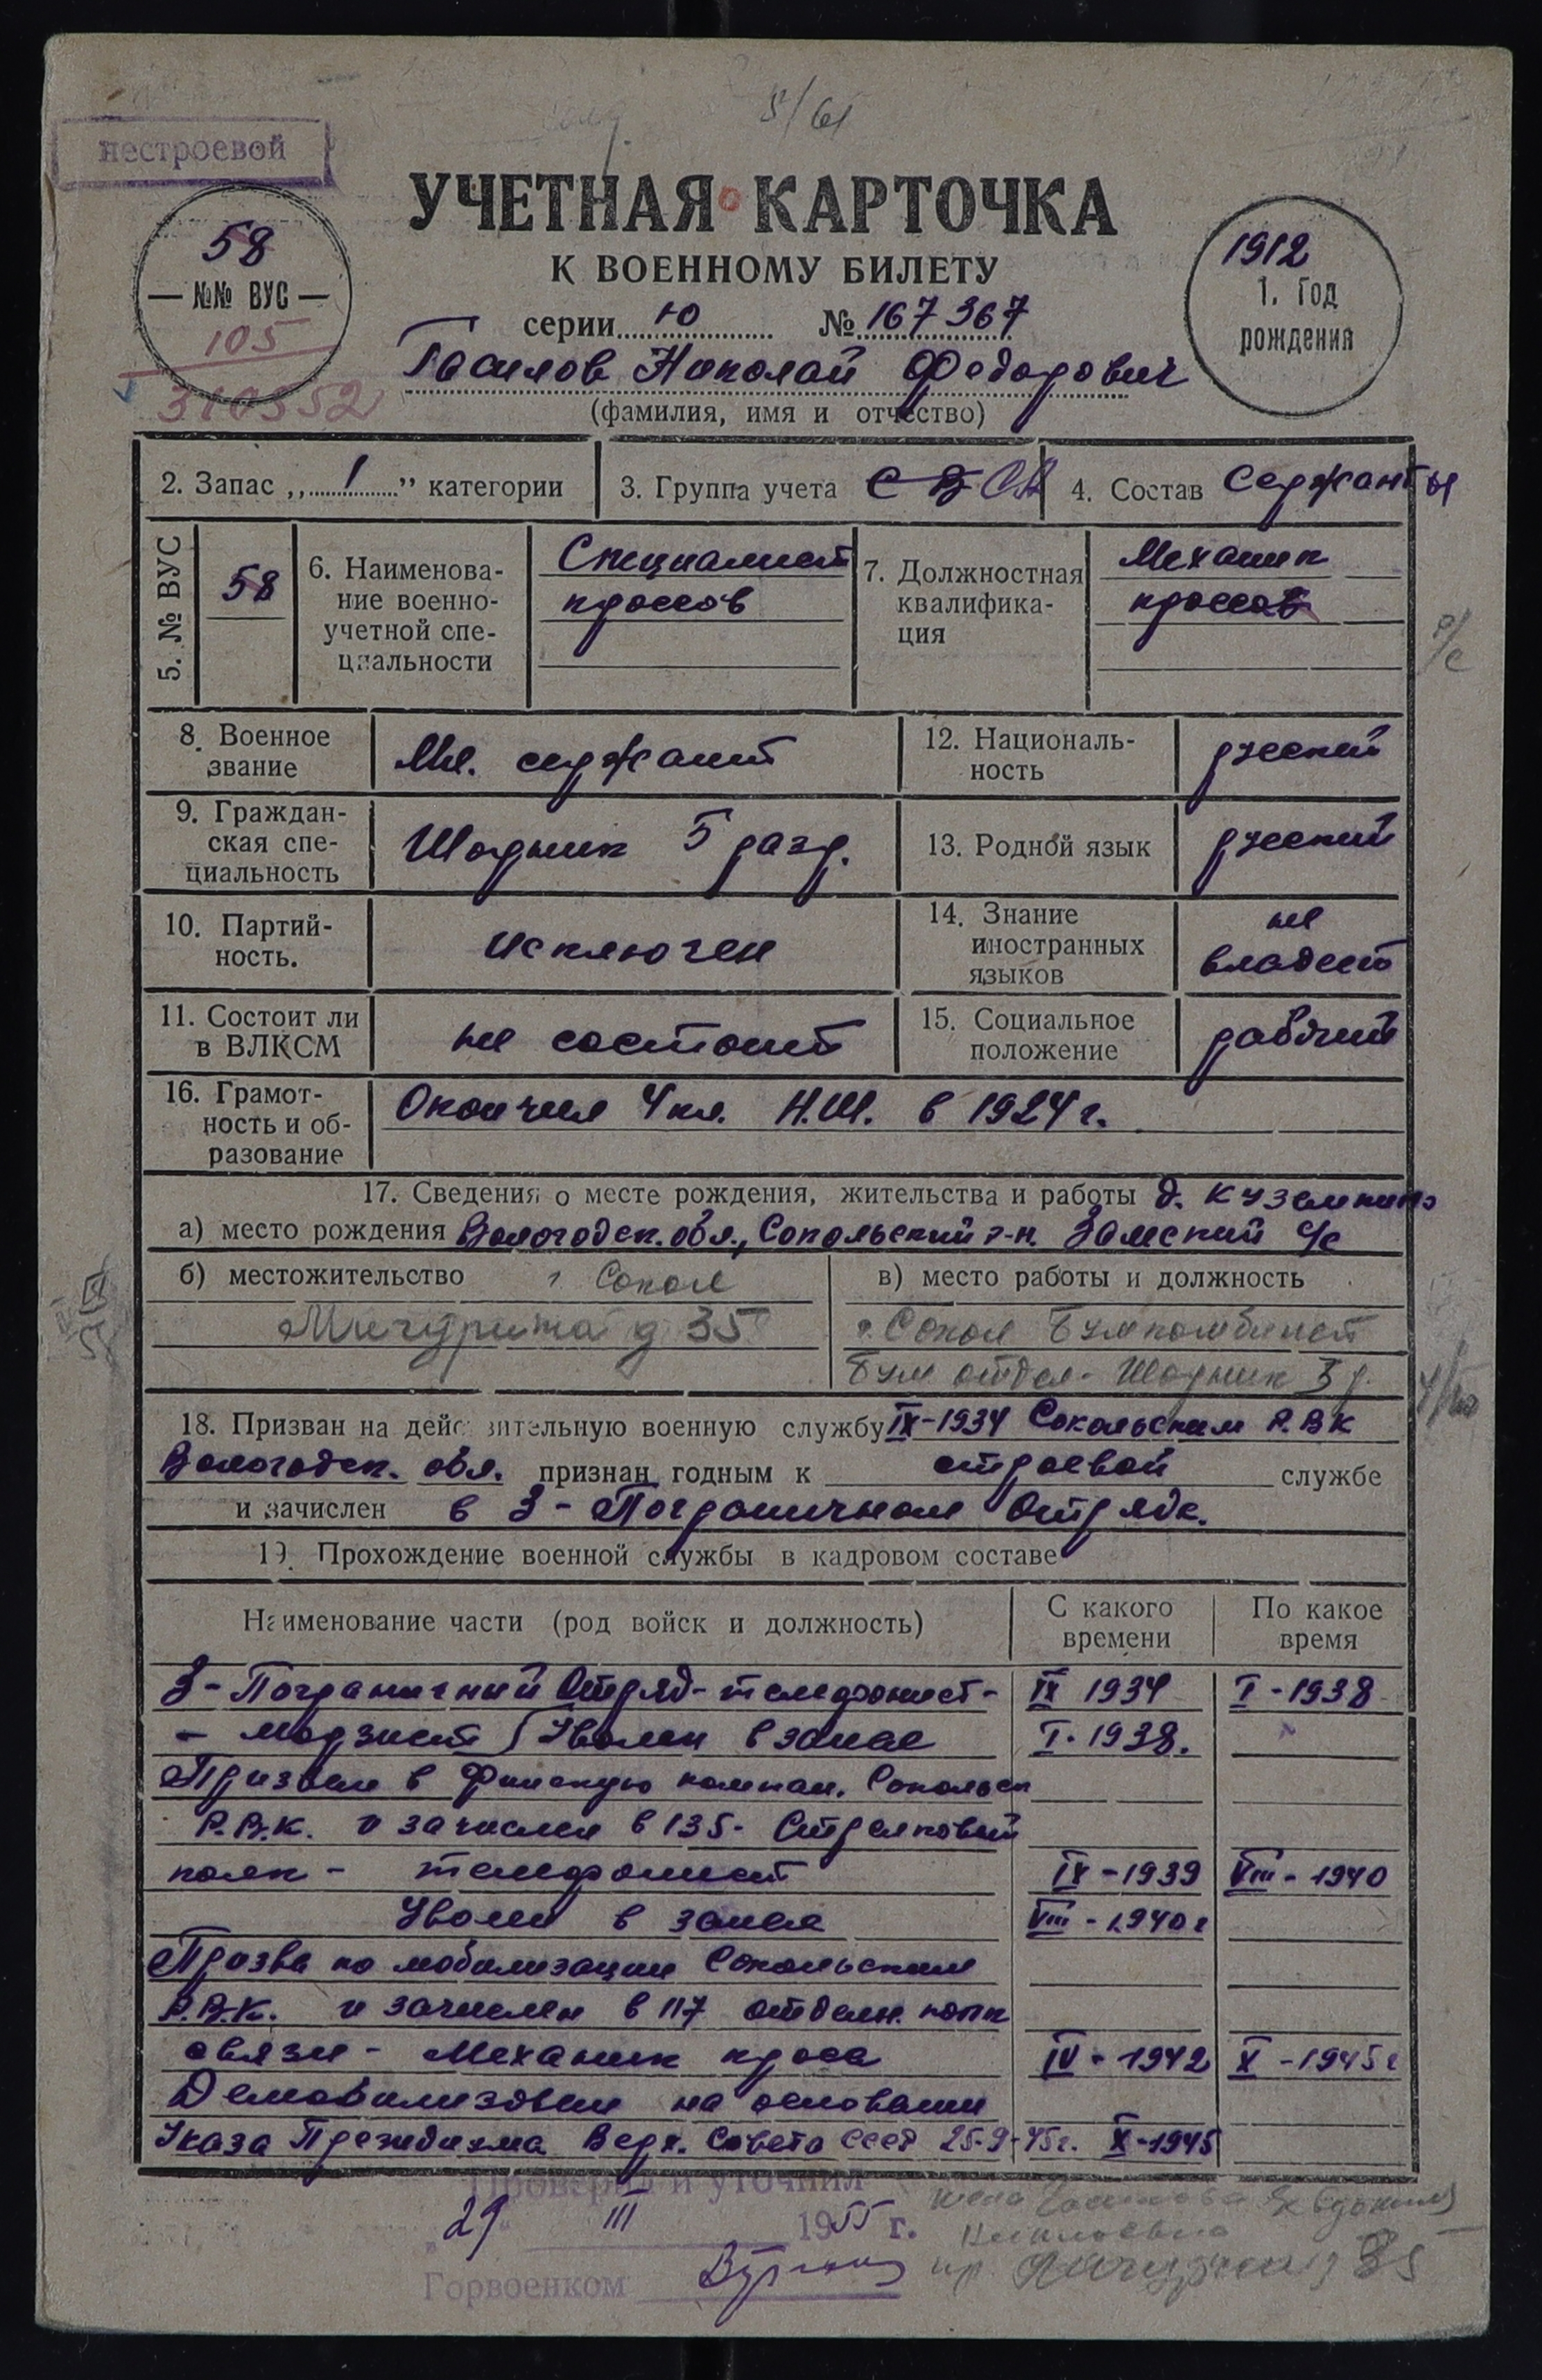 5/61
нестроевой
УЧЕТНАЯ КАРТОЧКА
К ВОЕННОМУ БИЛЕТУ
58
— №№ ВУС —
105
310552
1912
1. Год
рождения
серии Ю № 167367
Гасилов Николай Федорович
(фамилия, имя и отчество)
2. Запас „ 1 ” категории
3. Группа учета С В СА
4. Состав Сержанты
5. № ВУС
58
6. Наименова-
ние военно-
учетной спе-
циальности
Специалист
кроссов
7. Должностная
квалифика-
ция
Механик
кроссов
8. Военное
звание
Мл. сержант
12. Националь-
ность
русский
9. Граждан-
ская спе-
циальность
Шорник 5 разр.
13. Родной язык
русский
10. Партий-
ность.
исключен
14. Знание
иностранных
языков
не
владеет
11. Состоит ли
в ВЛКСМ
не состоит
15. Социальное
положение
рабочий
16. Грамот-
ность и об-
разование
Окончил 4 кл. Н.Ш. в 1924 г.
17. Сведения о месте рождения, жительства и работы д. Куземкино
а) место рождения Вологодск. обл., Сокольский р-н. Замский с/с
б) местожительство г Сокол
Мичурина д 35
в) место работы и должность
г. Сокол Бумкомбинат
Бум отдел - Шорник 5 р.
18. Призван на действительную военную службу IX-1934 Сокольским Р.В.К
Вологодск. обл. признан годным к строевой службе
и зачислен в 3 - Пограничном Отряде.
19. Прохождение военной службы в кадровом составе
Наименование части (род войск и должность)
С какого
времени
По какое
время
3 - Пограничный Отряд - телефонист - IX 1934 I - 1938
- морзист Уволен в запас I. 1938.
Призван в Финскую кампан. Сокольск
Р.В.К. и зачислен в 135 - Стрелковый
полк - телефонист IX - 1939 VIII - 1940
Уволен в запас VIII - 1940 г
Призва по мобилизации Сокольским
Р.В.К. и зачислен в 117 отделн. полк
связи - Механик кроса IV - 1942 X - 1945 г
Демобилизован на основании
Указа Президиума Верх. Совета СССР 25-9-45 г. X-1945
Проверил и уточнил
„29“ III 1955 г.
Горвоенком
жена Гасилова Евдокия
пр. Мичурина 35